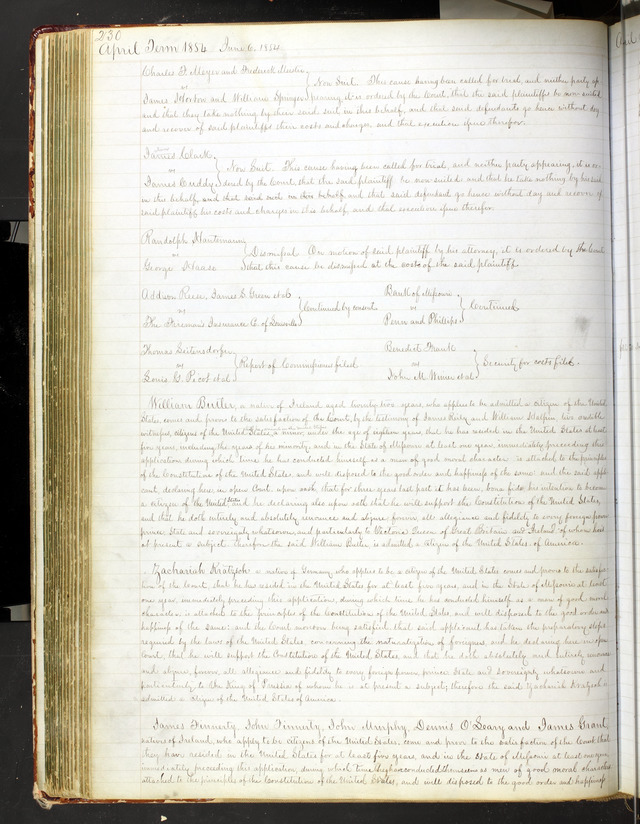 230
April Term 1854 June 6, 1854
Charles F. Meyer and Frederick Meister
vs
James Horton and William Springer
Non Suit. This cause having been called for trial, and neither party ap
pearing, it is ordered by the Court, that the said plaintiffs be non-suited
and that they take nothing by their said suit in this behalf, and that said defendants go hence without day
and recover of said plaintiffs their costs and charges, and that execution issue therefor.
James Clark
vs
James Cuddy
Non Suit. This cause having been called for trial, and neither party appearing, it is or-
dered by the Court that the said plaintiff be non suited and that he take nothing by his suit
in this behalf, and that said defendant go hence without day and recover of
said plaintiff his costs and charges in this behalf, and that execution issue therefor.
Randolph
vs
George Haase
Dismissed. On motion of said plaintiff by his attorney, it is ordered by the Court
that this cause be dismissed at the costs of the said plaintiff.
Addison Reese, James E. Green et al
vs
The Firemans Insurance Co. of Louisville
Continued by consent
Bank of Missouri
vs
and Phillips
Continued
Thomas Leitensdorfer
vs
Louis G. Picot et al
Report of Commissioners filed
Benedict Frank
vs
John M. Wimer et al
Security for costs filed.
William Butler, a native of Ireland aged twenty two years, who applies to be admitted a citizen of the United
States, comes and proves to the satisfaction of the Court, by the testimony of James and William Halpin, two credible
witnesses, citizens of the United States, a minor, under the age of eighteen years, that he has resided in the United States at least
five years, including the years of his minority, and in the State of Missouri at least one year, immediately preceding this
application, during which time he has conducted himself as a man of good moral character, is attached to the principles
of the Constitution of the United States, and well disposed to the good order and happiness of the same: and the said appli
cant, declaring here, in open Court, upon oath, that for three years last past it has been, bona fide his intention to become
a citizen of the United States, and he declaring also upon oath that he will support the Constitution of the United States,
and that he doth entirely and absolutely renounce and abjure forever all allegiance and fidelity to every foreign power
prince, State and sovereignty whatsoever, and particularly to Victoria Queen of Great Britain and Ireland of whom he is
at present a subject. Therefore the said William Butler, is admitted a citizen of the United States, of America.
Zachariah Kratzoh a native of Germany who applies to be a citizen of the United States comes and proves to the satisfac
tion of the Court that he has resided in the United States for at least five years, and in the State of Missouri at least
one year, immediately preceding this application, during which time he has conducted himself as a man of good moral
character, is attached to the principles of the Constitution of the United States, and well disposed to the good order and
happiness of the same: and the Court moreover being satisfied that said applicant has taken the preparatory steps
required by the laws of the United States, concerning the naturalization of foreigners, and he declaring here in open
Court, that he will support the Constitution of the United States, and that he doth absolutely and entirely renounce
and abjure, forever, all allegiance and fidelity to every foreign power, prince, State and Sovereignty whatsoever and
particularly to the King of Prussia of whom he is at present a subject, therefore the said Zachariah Kratzoh is
admitted a citizen of the United States of America.
James Finnerty, John Finnerty, John Murphy, Dennis O'Leary and James Grant,
natives of Ireland, who apply to be citizens of the United States, come and prove to the satisfaction of the Court that
they have resided in the United States for at least five years, and in the State of Missouri at least one year,
immediately preceding this application, during which time they have conducted themselves as men of good moral character
attached to the principles of the Constitution of the United States, and well disposed to the good order and happiness